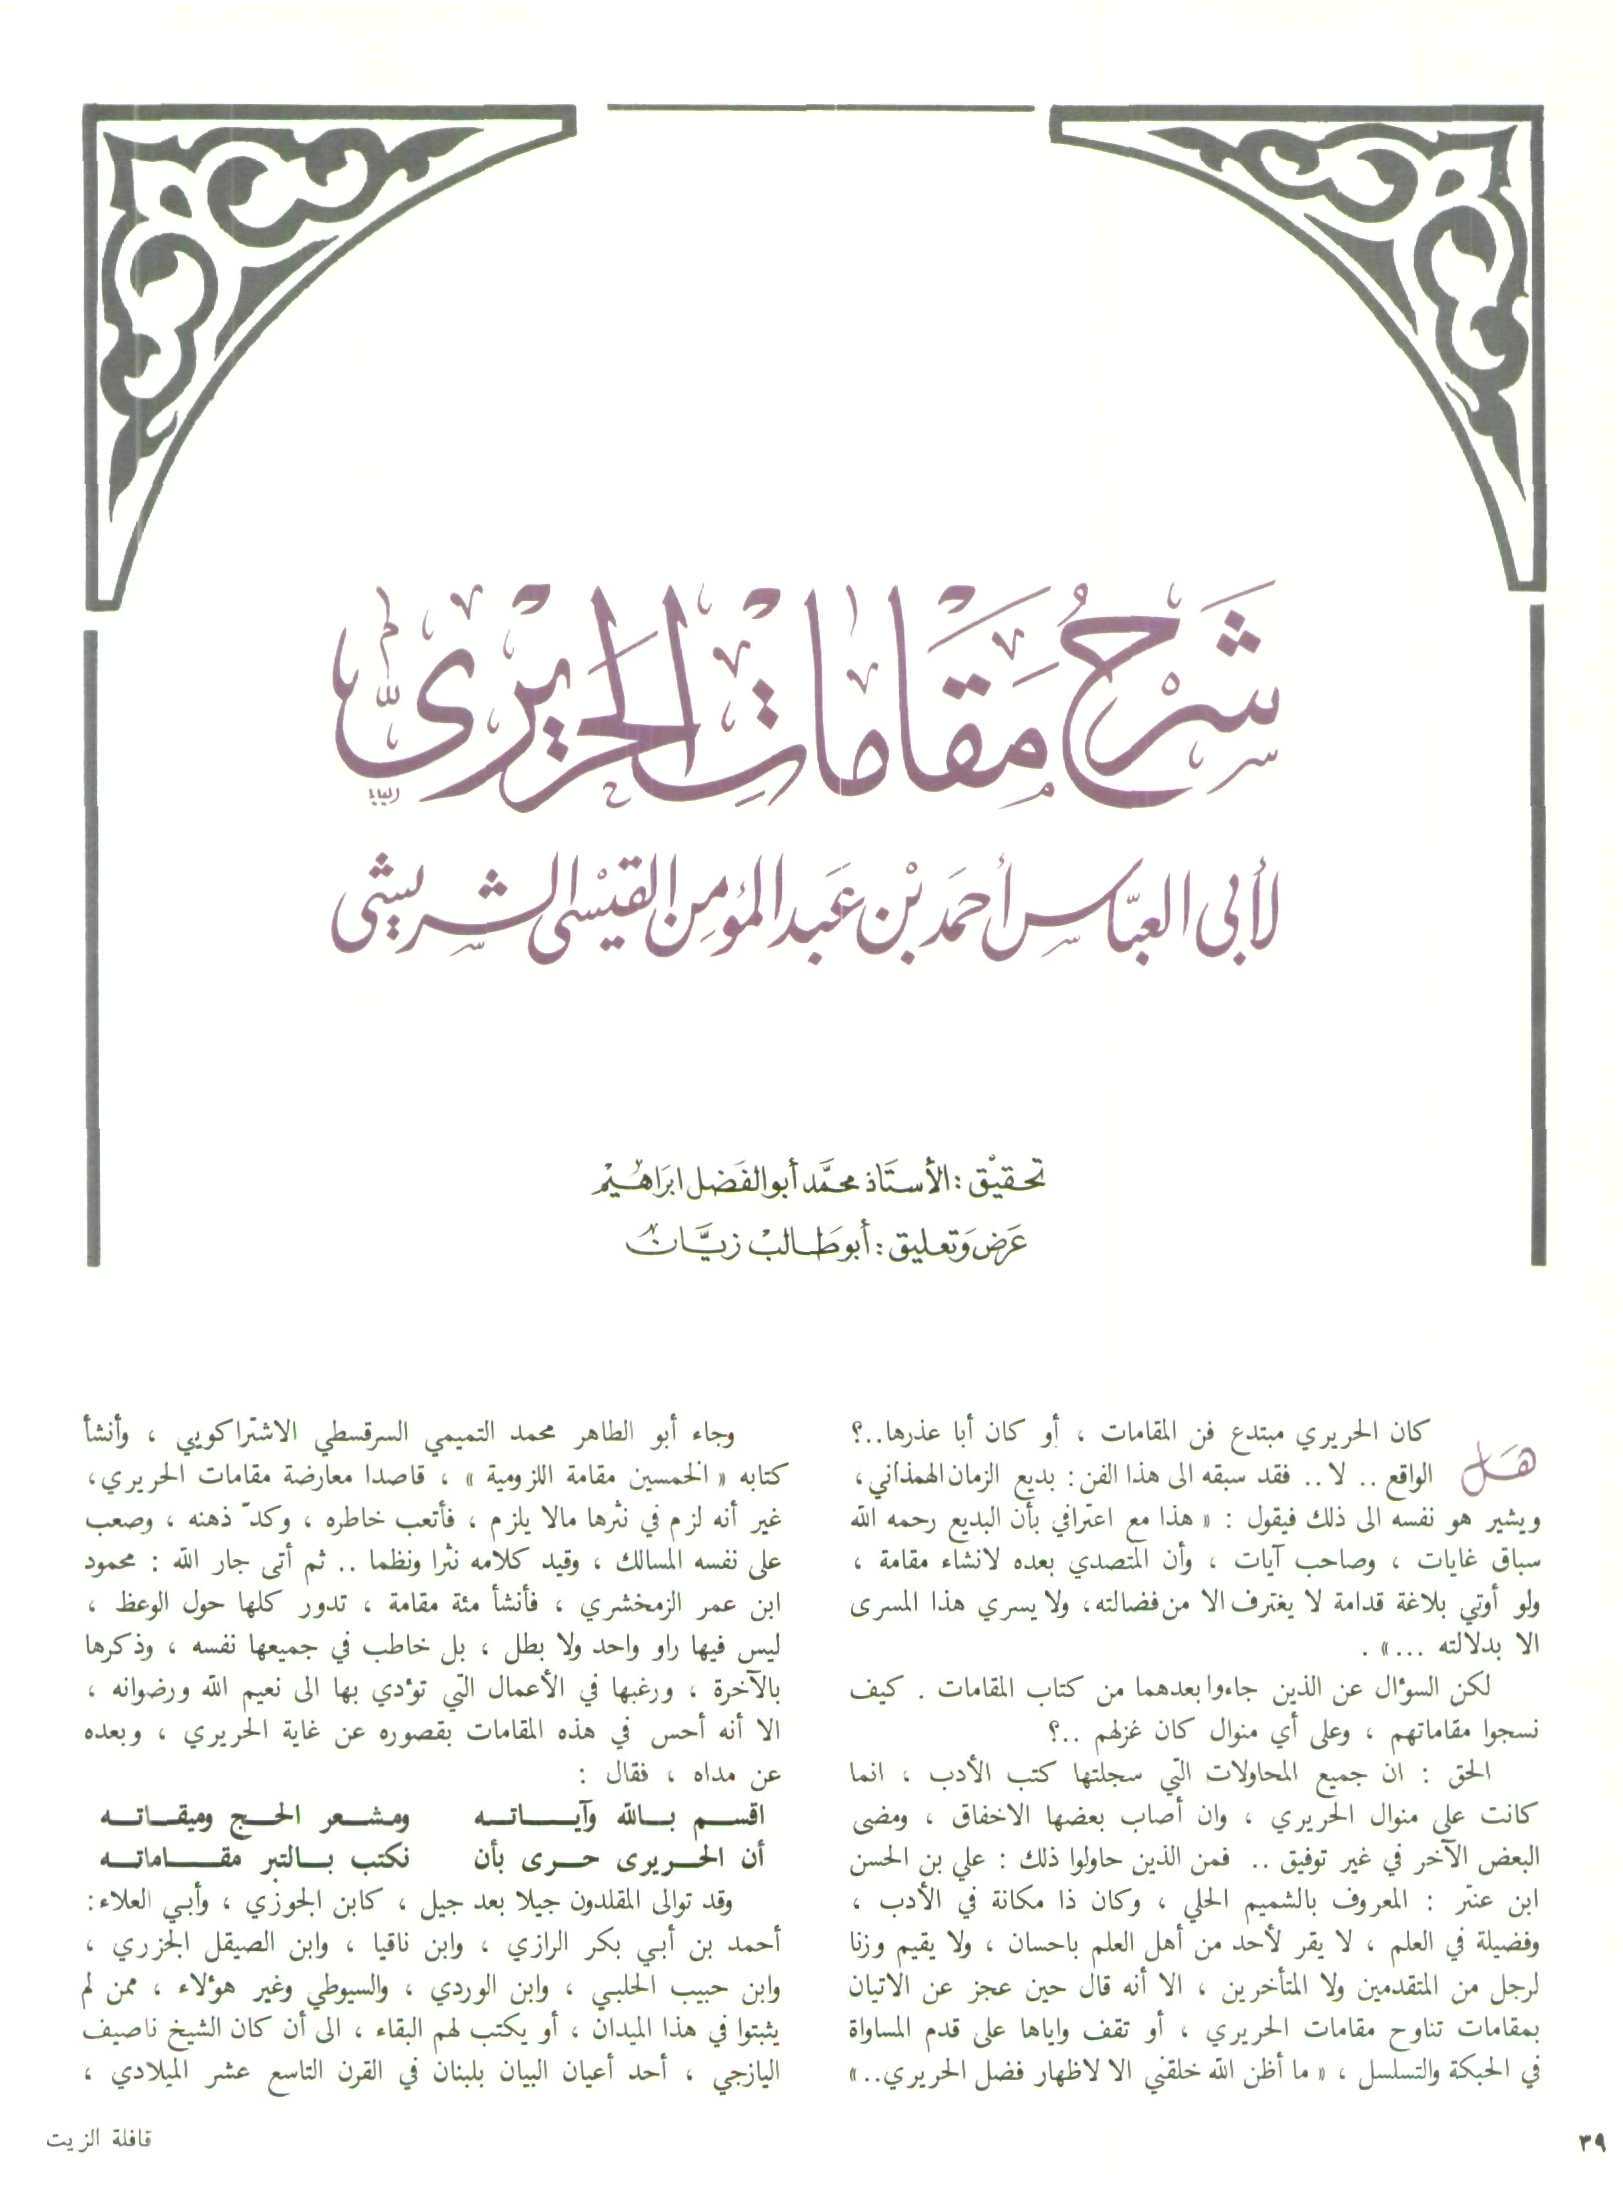 شرح مقامات الحريرى
لأبى العباس أحمد بن عبد المؤمن القيسى الشريشى
تحقيق : الأستاذ محمد أبو الفضل ابراهيم
عرض وتعليق : أبو طالب زيان
هل كان الحريري مبتدع فن المقامات ، أو كان أبا عذرها..؟
الواقع .. لا .. فقد سبقه الى هذا الفن : بديع الزمان الهمذاني ،
ويشير هو نفسه الى ذلك فيقول : « هذا مع اعترافي بأن البديع رحمه الله
سباق غايات ، وصاحب آيات ، وأن المتصدي بعده لانشاء مقامة ،
ولو أوتي بلاغة قدامة لا يغترف الا من فضالته، ولا يسري هذا المسرى
الا بدلالته ...» .
لكن السؤال عن الذين جاءوا بعدهما من كتاب المقامات . كيف
نسجوا مقاماتهم ، وعلى أي منوال كان غزلهم ..؟
الحق : ان جميع المحاولات التي سجلتها كتب الأدب ، انما
كانت على منوال الحريري ، وان أصاب بعضها الاخفاق ، ومضى
البعض الآخر في غير توفيق .. فمن الذين حاولوا ذلك : علي بن الحسن
ابن عنتر : المعروف بالشميم الحلي ، وكان ذا مكانة في الأدب ،
وفضيلة في العلم ، لا يقر لأحد من أهل العلم باحسان ، ولا يقيم وزنا
لرجل من المتقدمين ولا المتأخرين ، الا أنه قال حين عجز عن الاتيان
بمقامات تناوح مقامات الحريري ، أو تقف واياها على قدم المساواة
في الحبكة والتسلسل ، « ما أظن الله خلقني الا لاظهار فضل الحريري..»
وجاء أبو الطاهر محمد التميمي السرقسطي الاشتراكويي ، وأنشأ
كتابه « الخمسين مقامة اللزومية » ، قاصدا معارضة مقامات الحريري،
غير أنه لزم في نثرها مالا يلزم ، فأتعب خاطره ، وكدّ ذهنه ، وصعب
على نفسه المسالك ، وقيد كلامه نثرا ونظما .. ثم أتى جار الله : محمود
ابن عمر الزمخشري ، فأنشأ مئة مقامة ، تدور كلها حول الوعظ ،
ليس فيها راو واحد ولا بطل ، بل خاطب في جميعها نفسه ، وذكرها
بالآخرة ، ورغبها في الأعمال التي تؤدي بها الى نعيم الله ورضوانه ،
الا أنه أحس في هذه المقامات بقصوره عن غاية الحريري ، وبعده
عن مداه ، فقال :
اقسم بالله وآياته ومشعر الحج وميقاته
أن الحريرى حرى بأن نكتب بالتبر مقاماته
وقد توالى المقلدون جيلا بعد جيل ، كابن الجوزي ، وأبي العلاء:
أحمد بن أبي بكر الرازي ، وابن ناقيا ، وابن الصيقل الجزري ،
وابن حبيب الحلبي ، وابن الوردي ، والسيوطي وغير هؤلاء ، ممن لم
يثبتوا في هذا الميدان ، أو يكتب لهم البقاء ، الى أن كان الشيخ ناصيف
اليازجي ، أحد أعيان البيان بلبنان في القرن التاسع عشر الميلادي ،
٣٩
قافلة الزيت